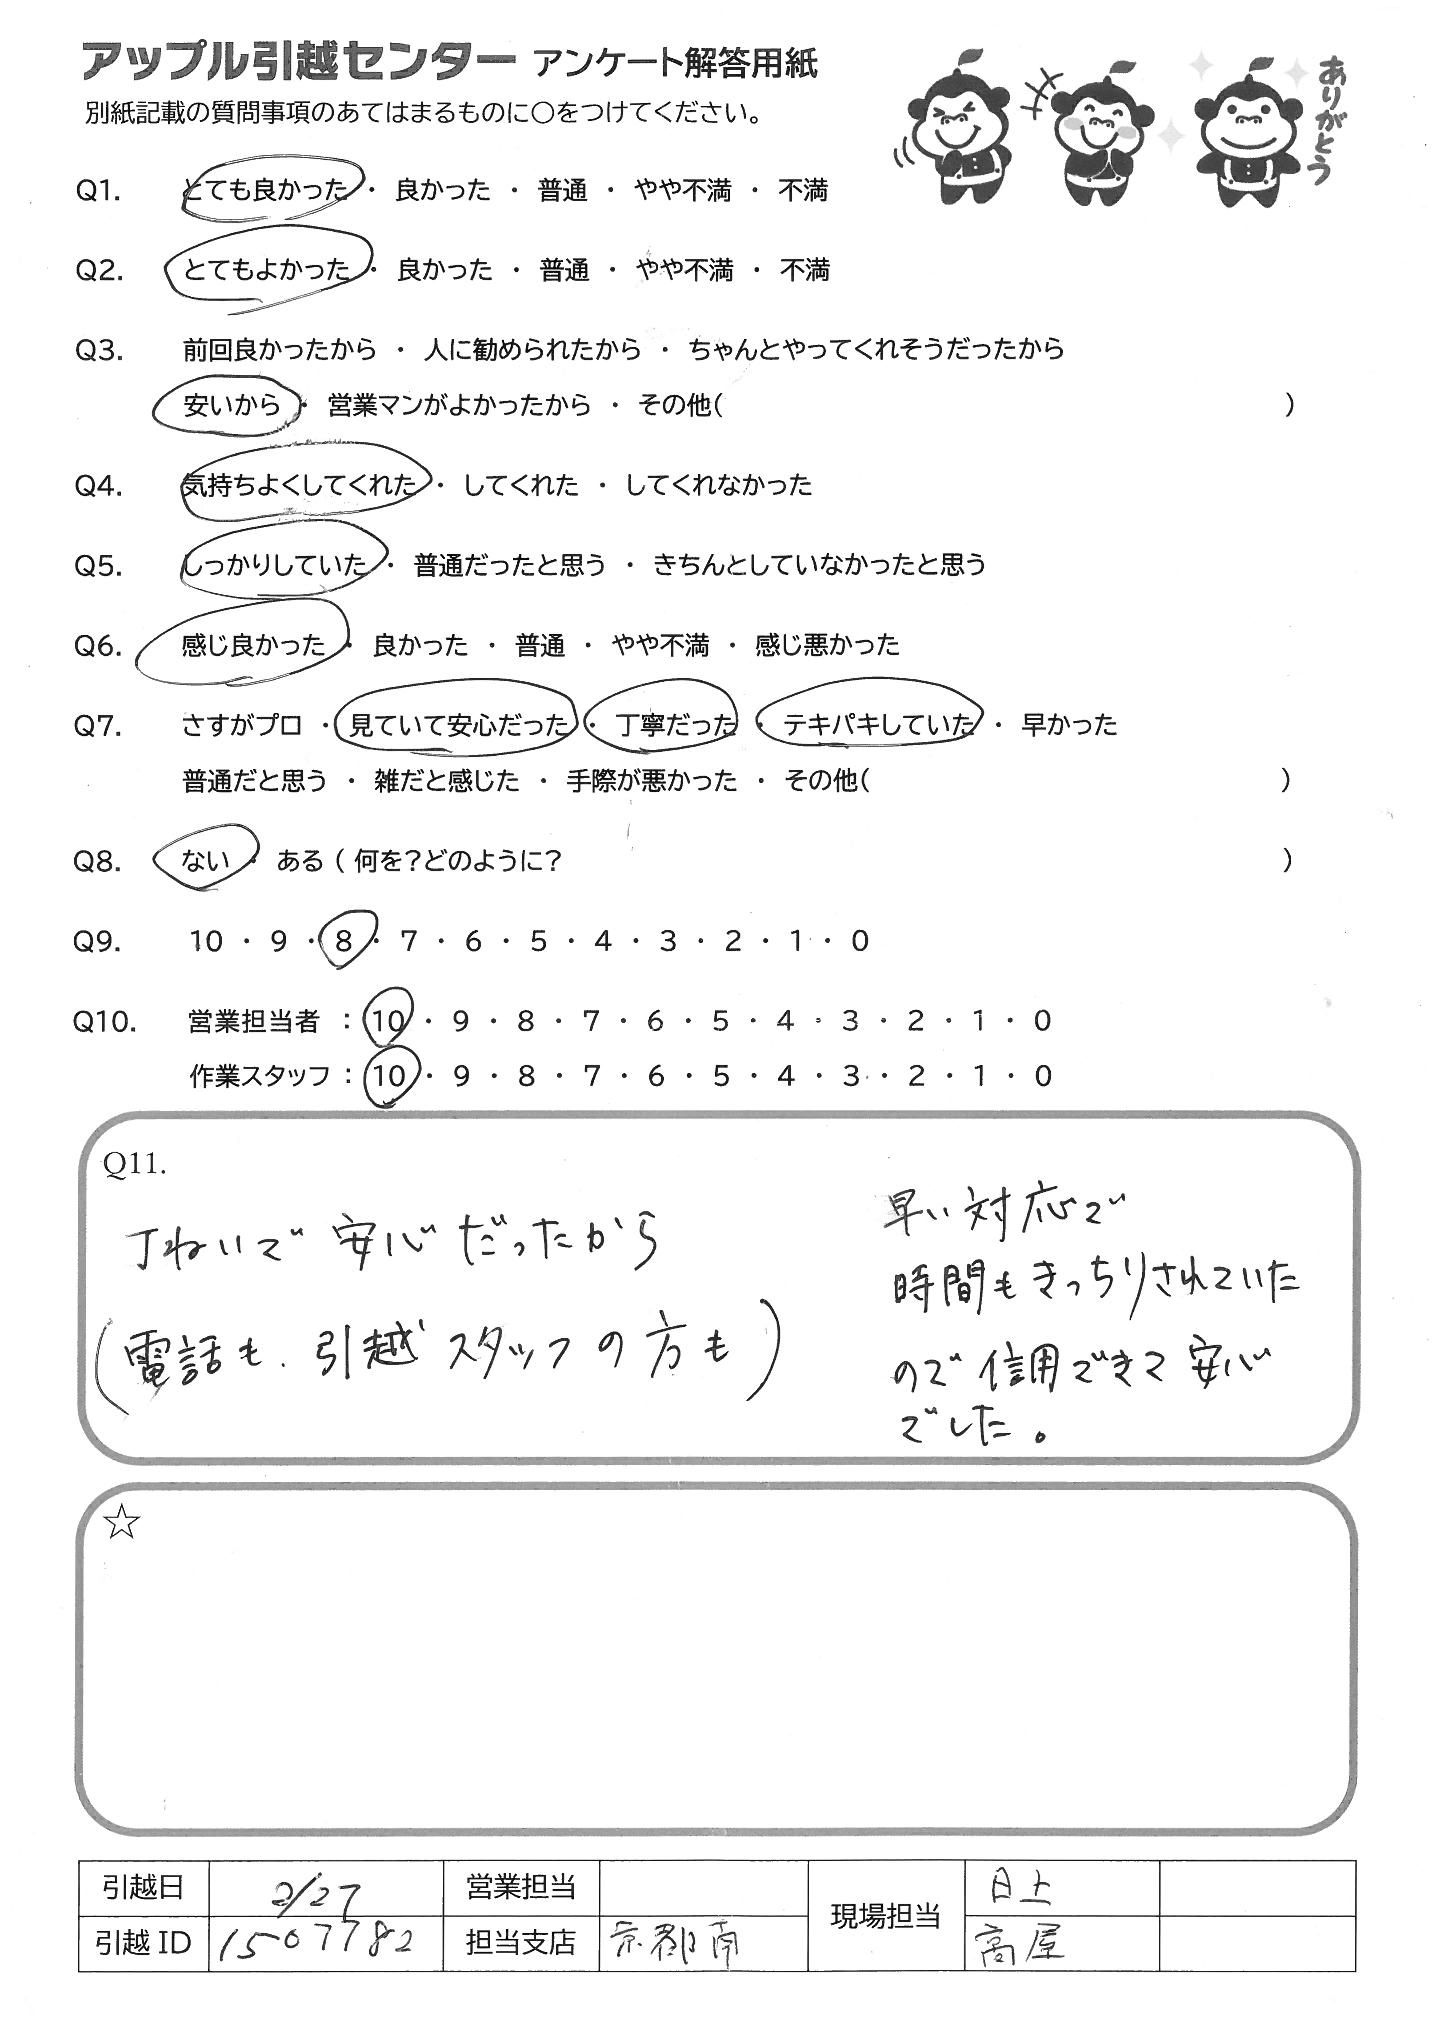 アップル引越センター アンケート解答用紙
別紙記載の質問事項のあてはまるものに○をつけてください。
ありがとう
Q1. とても良かった ・ 良かった ・ 普通 ・ やや不満 ・ 不満
Q2. とてもよかった ・ 良かった ・ 普通 ・ やや不満 ・ 不満
Q3. 前回良かったから ・ 人に勧められたから ・ ちゃんとやってくれそうだったから
安いから ・ 営業マンがよかったから ・ その他( )
Q4. 気持ちよくしてくれた ・ してくれた ・ してくれなかった
Q5. しっかりしていた ・ 普通だったと思う ・ きちんとしていなかったと思う
Q6. 感じ良かった ・ 良かった ・ 普通 ・ やや不満 ・ 感じ悪かった
Q7. さすがプロ ・ 見ていて安心だった ・ 丁寧だった ・ テキパキしていた ・ 早かった
普通だと思う ・ 雑だと感じた ・ 手際が悪かった ・ その他( )
Q8. ない ・ ある ( 何を?どのように? )
Q9. 10 ・ 9 ・ 8 ・ 7 ・ 6 ・ 5 ・ 4 ・ 3 ・ 2 ・ 1 ・ 0
Q10. 営業担当者 : 10 ・ 9 ・ 8 ・ 7 ・ 6 ・ 5 ・ 4 ・ 3 ・ 2 ・ 1 ・ 0
作業スタッフ : 10 ・ 9 ・ 8 ・ 7 ・ 6 ・ 5 ・ 4 ・ 3 ・ 2 ・ 1 ・ 0
Q11.
丁ねいで安心だったから
(電話も、引越スタッフの方も)
早い対応で
時間もきっちりされていた
ので信用できて安心
でした。
☆
引越日 2/27 営業担当 現場担当 日上
引越ID 1507782 担当支店 京都南 高屋